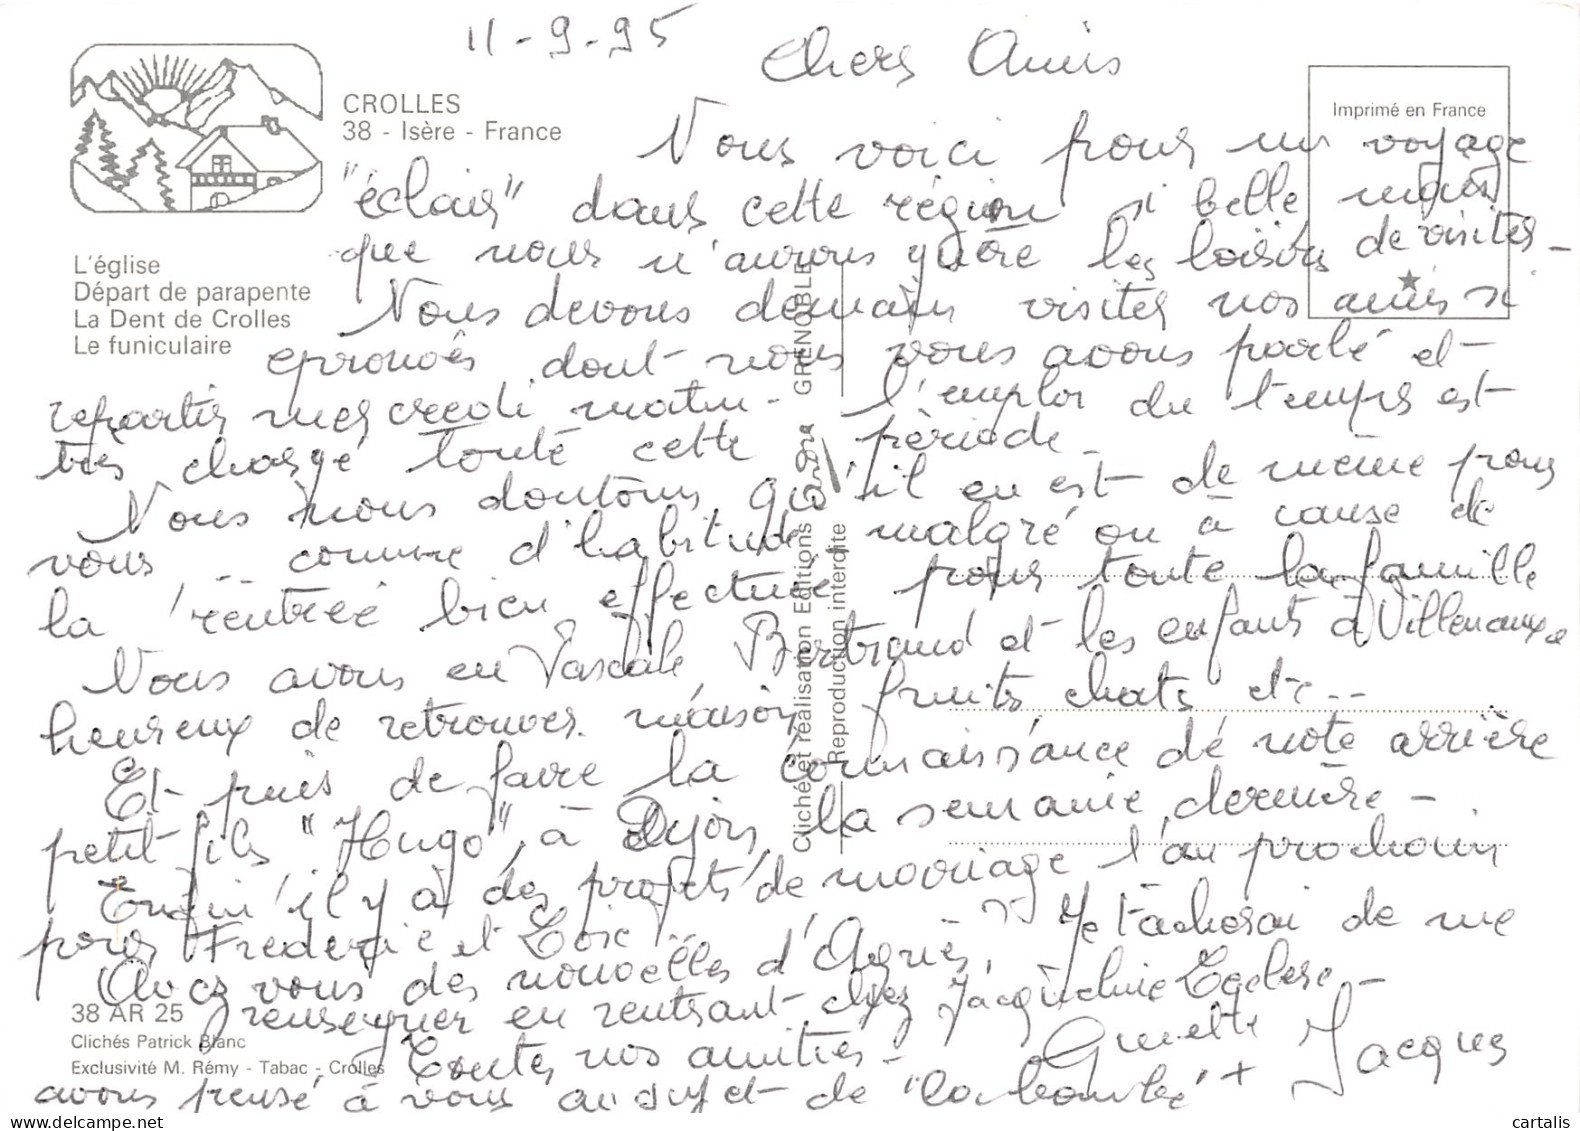 11-9-95
Chers Amis
CROLLES
38 - Isère - France
Imprimé en France
Nous voici pour un voyage
"éclair" dans cette région si belle mais
que nous n'aurons guère les loisirs de visiter -
L'église
Départ de parapente
La Dent de Crolles
Le funiculaire
Nous devons demain visiter nos amis si
éprouvés dont nous vous avons parlé et
repartir mercredi matin - l'emploi du temps est
très chargé toute cette période -
Nous nous doutons qu'il en est de même pour
vous comme d'habitude malgré ou à cause de
la rentrée bien effectuée pour toute la famille
Nous avons eu Pascale, Bertrand et les enfants à Villenauxe
heureux de retrouver maison, fruits chats etc...
Et puis de faire la connaissance de notre arrière
petit fils "Hugo", à Dijon, la semaine dernière -
Enfin il y a des projets de mariage l'an prochain
pour Frédéric et Loïc
Avez vous des nouvelles d'Agnès, ?? Je tâcherai de me
renseigner en rentrant chez Jacqueline
Toutes nos amitiés - Jacques
38 AR 25
Clichés Patrick Blanc
Exclusivité M. Rémy - Tabac - Crolles
+ avons pensé à vous au sujet de "la bombe"
Clichés et réalisation Editions André GRENOBLE
Reproduction interdite